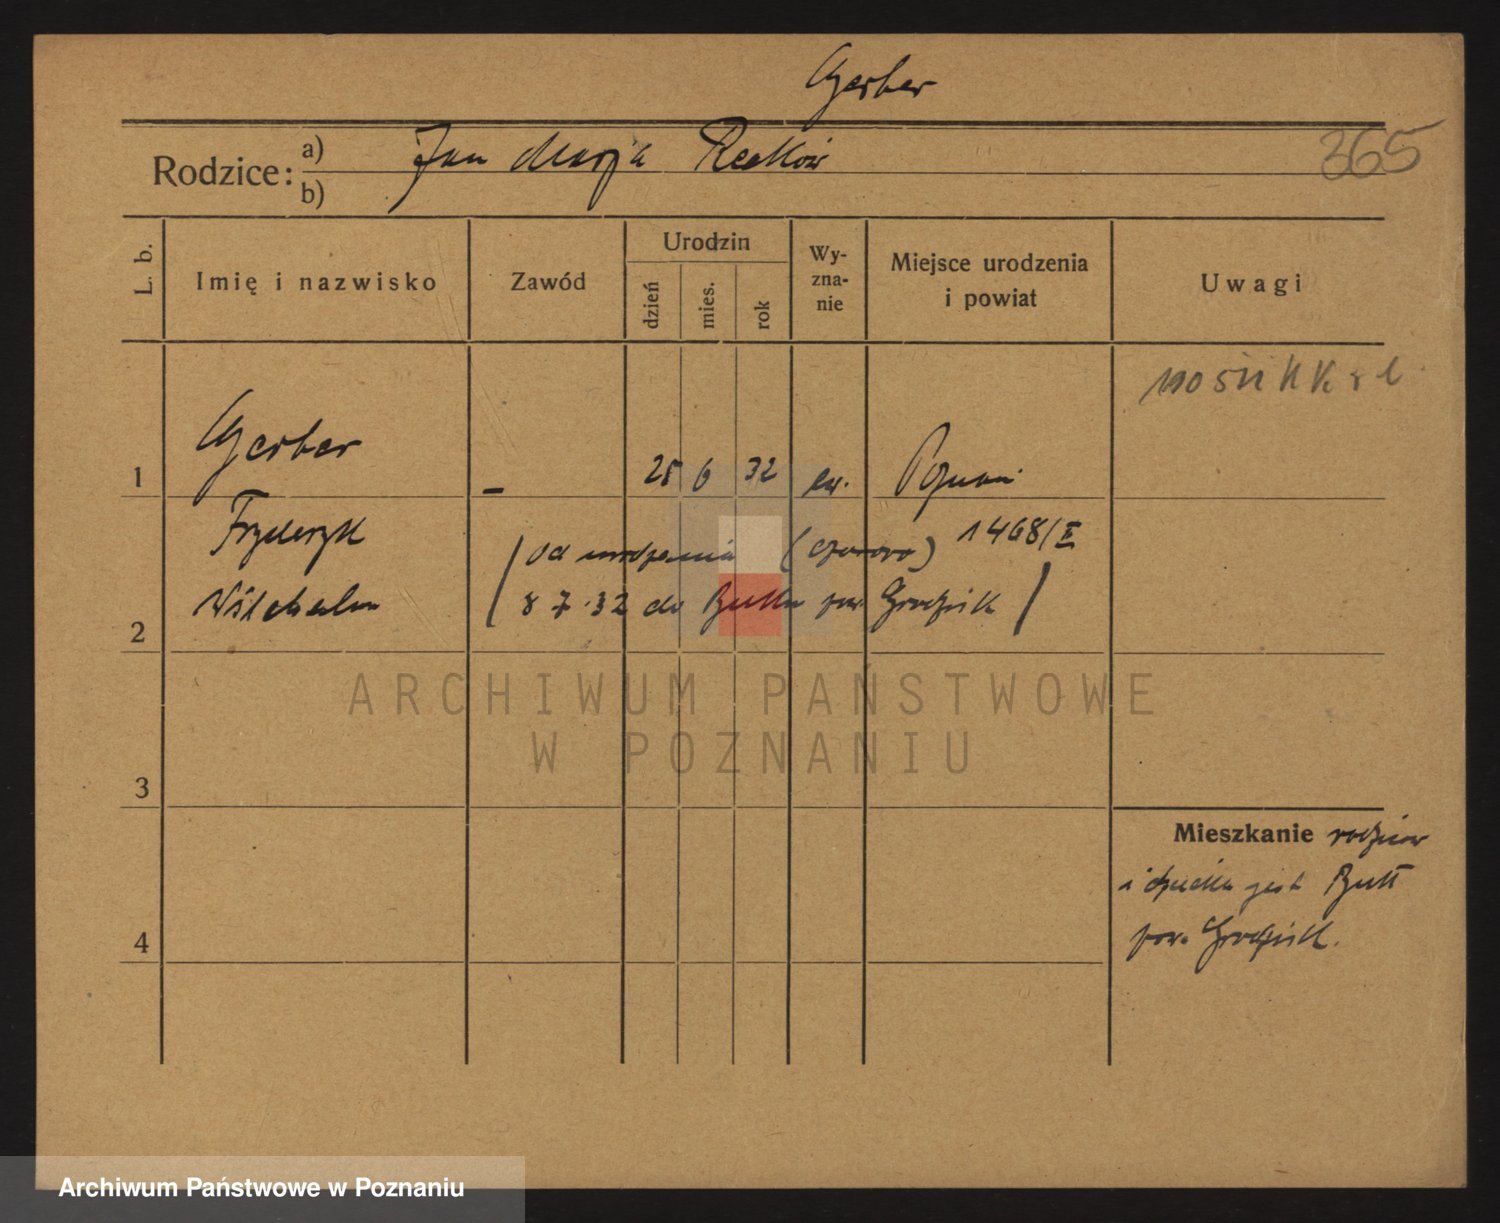 Gerber
365
Rodzice: a) Jan Marja
b)
L. b.
Imię i nazwisko
Zawód
Urodzin
dzień
mies.
rok
Wy-
zna-
nie
Miejsce urodzenia
i powiat
Uwagi
Gerber
1
–
25 6 32
ew.
Poznań
Fryderyk
(od urodzenia (czasowo) 1468/II
Wilchelm
8 7.32 do Buku pow. Grodzisk)
2
ARCHIWUM PAŃSTWOWE
W POZNANIU
3
Mieszkanie rodziców
i dziecka jest Buk
pow. Grodzisk.
4
Archiwum Państwowe w Poznaniu